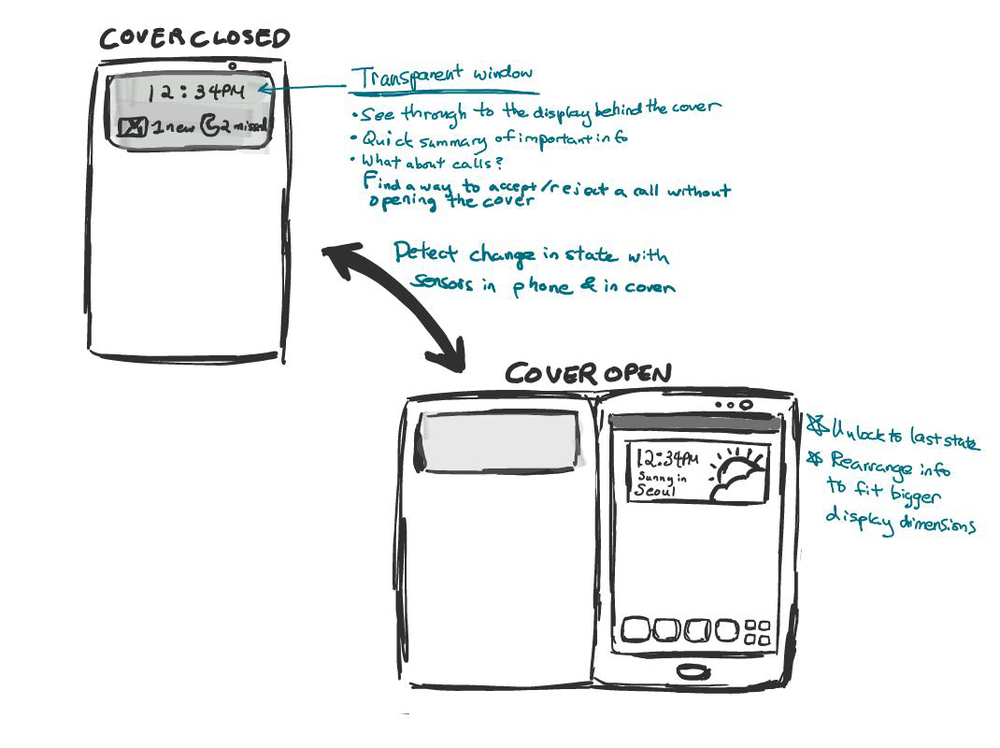 COVER CLOSED
12:34PM
1 new 2 missed
Transparent window
• See through to the display behind the cover
• Quick summary of important info
• What about calls?
Find a way to accept/reject a call without
opening the cover
Detect change in state with
sensors in phone & in cover
COVER OPEN
12:34PM
Sunny in
Seoul
Unlock to last state
Rearrange info
to fit bigger
display dimensions